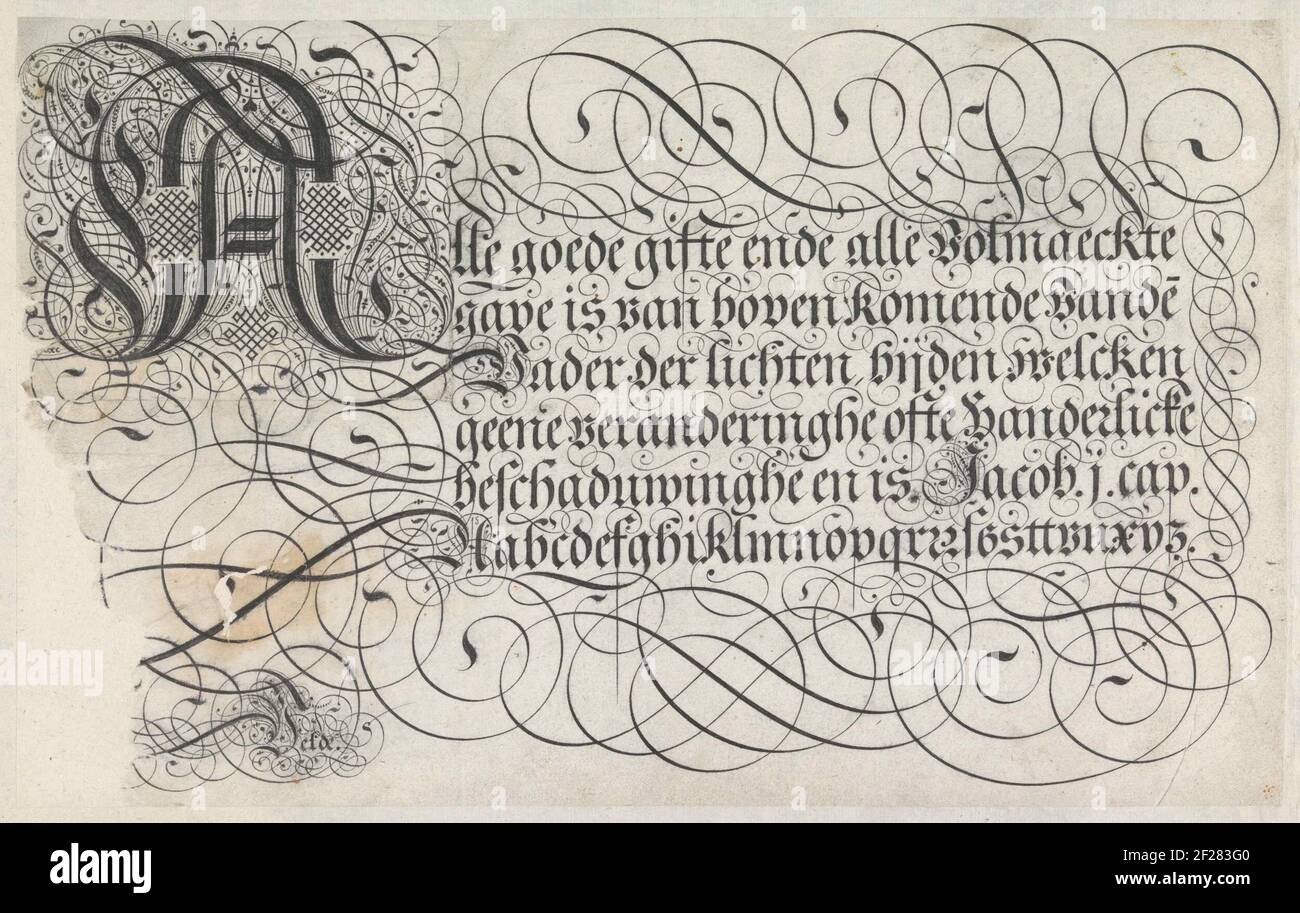 Alle goede gifte ende alle Volmaeckte
gave is van boven komende Vandē
Vader der lichten, bijden welcken
geene veranderinghe ofte Handerlicke
beschaduwinghe en is. Jacob. j. cap.
Aabcdefghiklmnopqrꝛsſsttvuxyz.
Velde.
alamy
Image ID: 2F283G0
www.alamy.com